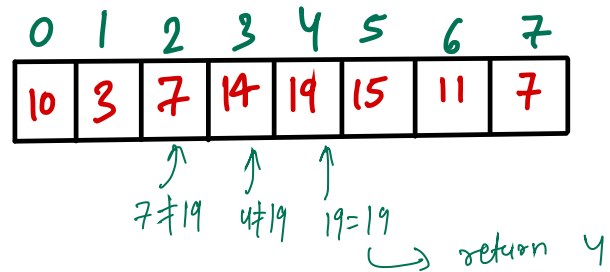 0 1 2 3 4 5 6 7
10 3 7 14 19 15 11 7
7≠19 4≠19 19=19
return 4